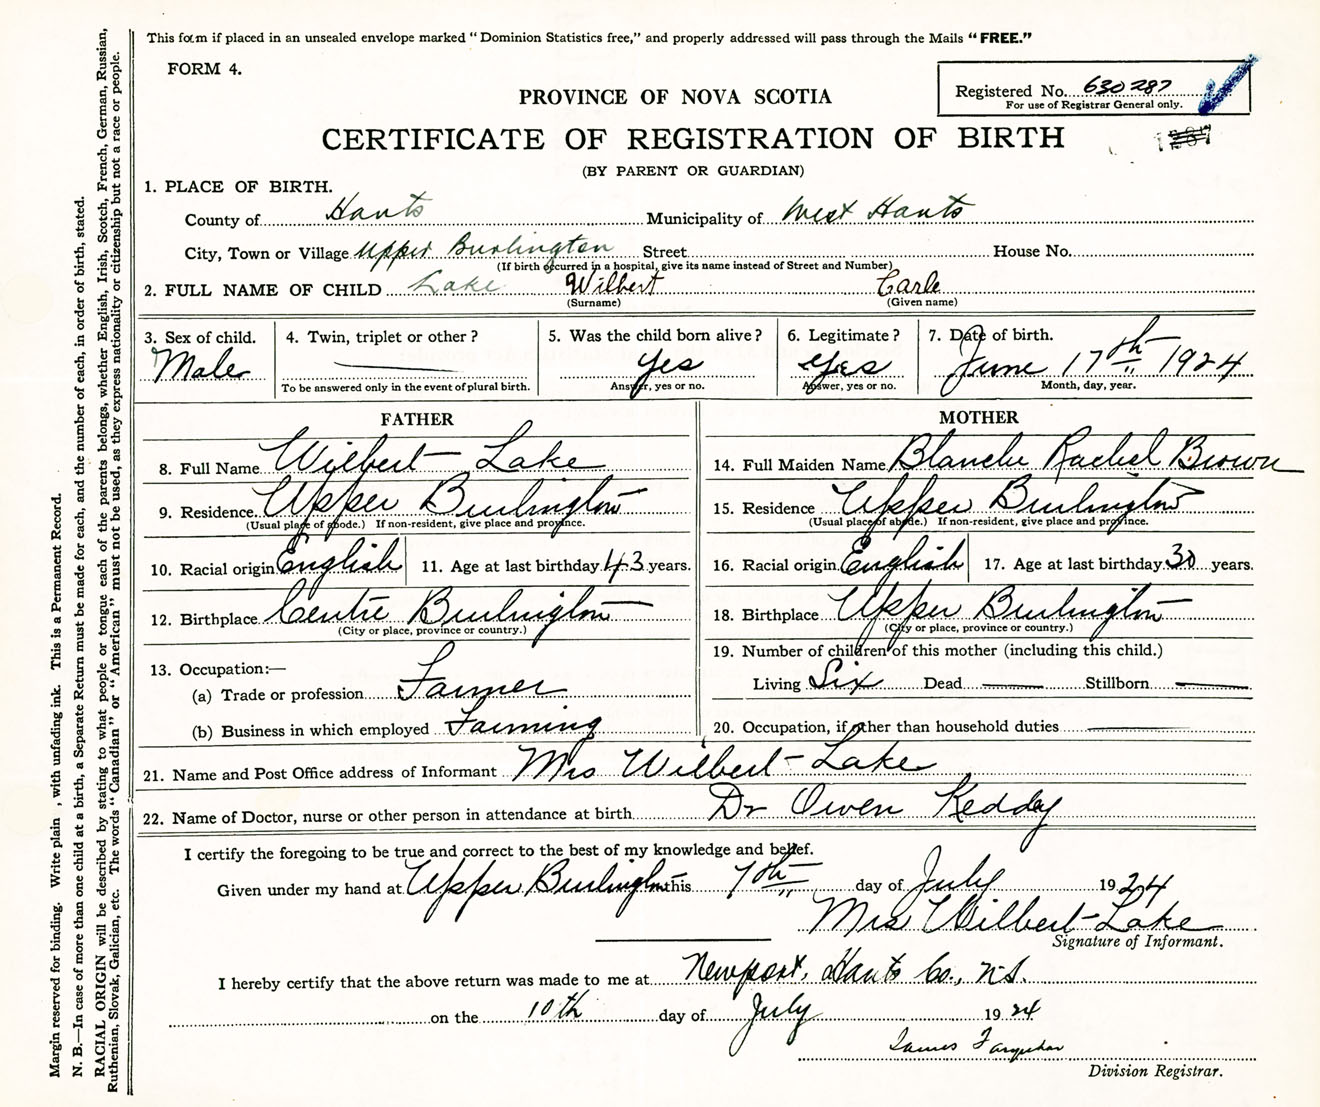 This form if placed in an unsealed envelope marked "Dominion Statistics free," and properly addressed will pass through the Mails "FREE."
FORM 4.
Registered No. 630287
For use of Registrar General only.
PROVINCE OF NOVA SCOTIA
CERTIFICATE OF REGISTRATION OF BIRTH
(BY PARENT OR GUARDIAN)
1. PLACE OF BIRTH.
County of Hants Municipality of West Hants
City, Town or Village Upper Burlington Street House No.
(If birth occurred in a hospital, give its name instead of Street and Number)
2. FULL NAME OF CHILD Lake Wilbert Carle
(Surname) (Given name)
3. Sex of child. 4. Twin, triplet or other? 5. Was the child born alive? 6. Legitimate? 7. Date of birth.
Male Yes Yes June 17th 1924
To be answered only in the event of plural birth. Answer, yes or no. Answer, yes or no. Month, day, year.
FATHER
8. Full Name Wilbert Lake
9. Residence Upper Burlington
(Usual place of abode.) If non-resident, give place and province.
10. Racial origin English 11. Age at last birthday 43 years.
12. Birthplace Centre Burlington
(City or place, province or country.)
13. Occupation:—
(a) Trade or profession Farmer
(b) Business in which employed Farming
MOTHER
14. Full Maiden Name Blanche Rachel Brown
15. Residence Upper Burlington
(Usual place of abode.) If non-resident, give place and province.
16. Racial origin English 17. Age at last birthday 30 years.
18. Birthplace Upper Burlington
(City or place, province or country.)
19. Number of children of this mother (including this child.)
Living Six Dead Stillborn
20. Occupation, if other than household duties
21. Name and Post Office address of Informant Mrs Wilbert Lake
22. Name of Doctor, nurse or other person in attendance at birth Dr Owen Keddy
I certify the foregoing to be true and correct to the best of my knowledge and belief.
Given under my hand at Upper Burlington this 7th day of July 1924
Mrs Wilbert Lake
Signature of Informant.
I hereby certify that the above return was made to me at Newport, Hants Co., N.S.
on the 10th day of July 1924
James Farquhar
Division Registrar.
Margin reserved for binding. Write plain , with unfading ink. This is a Permanent Record.
N. B.—In case of more than one child at a birth, a Separate Return must be made for each, and the number of each, in order of birth, stated.
RACIAL ORIGIN will be described by stating to what people or tongue each of the parents belongs, whether English, Irish, Scotch, French, German, Russian,
Ruthenian, Slovak, Galician, etc. The words "Canadian" or "American" must not be used, as they express nationality or citizenship but not a race or people.